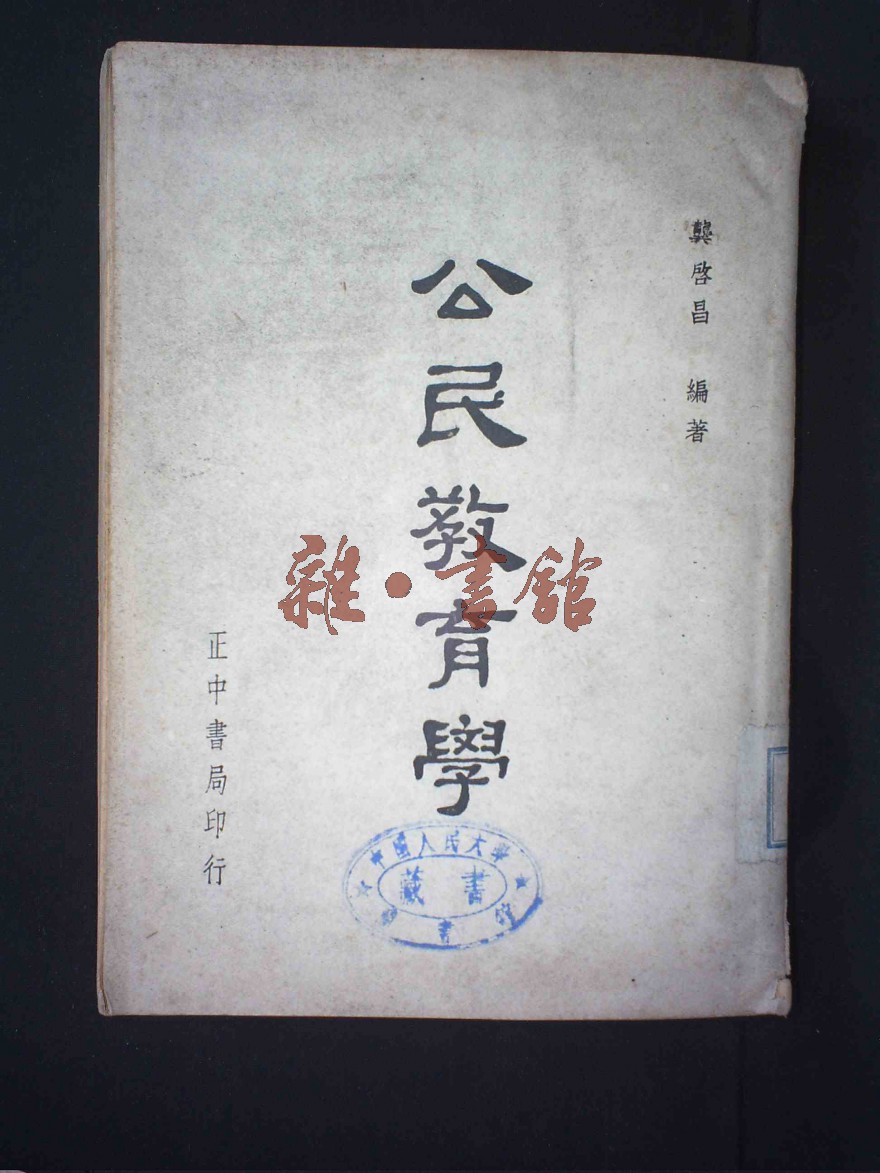 龔啓昌 編著
公民教育學
正中書局印行
雜·書館
中國人民大學
藏書
圖書館